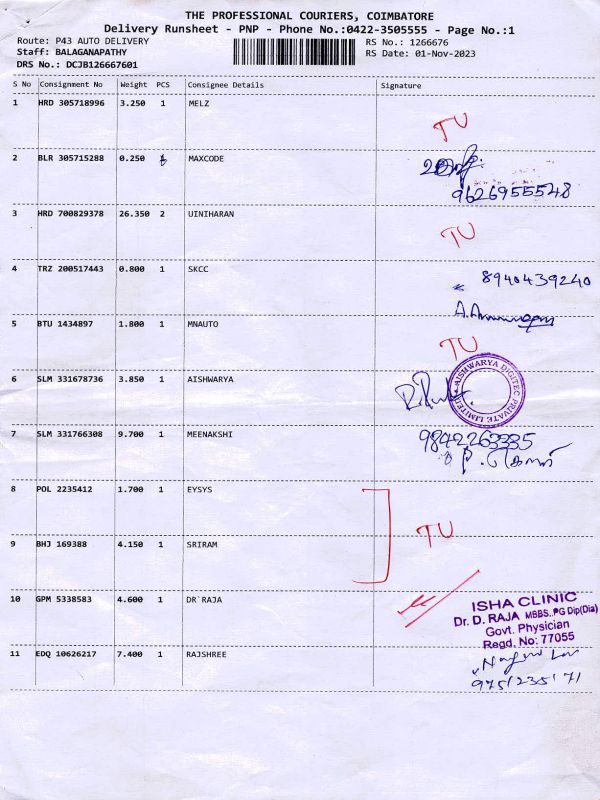 THE PROFESSIONAL COURIERS, COIMBATORE
Delivery Runsheet - PNP - Phone No.:0422-3505555 - Page No.:1
Route: P43 AUTO DELIVERY RS No.: 1266676
Staff: BALAGANAPATHY RS Date: 01-Nov-2023
DRS No.: DCJB126667601
S No Consignment No Weight PCS Consignee Details Signature
1 HRD 305718996 3.250 1 MELZ
TU
2 BLR 305715288 0.250 MAXCODE
9626955548
3 HRD 700829378 26.350 2 UINIHARAN
TU
4 TRZ 200517443 0.800 1 SKCC 8940439240
5 BTU 1434897 1.800 1 MNAUTO
TU
6 SLM 331678736 3.850 1 AISHWARYA
AISHWARYA DIGITEC PRIVATE LIMITED
7 SLM 331766308 9.700 1 MEENAKSHI 9842263335
8 POL 2235412 1.700 1 EYSYS
TU
9 BHJ 169388 4.150 1 SRIRAM
10 GPM 5338583 4.600 1 DR`RAJA
ISHA CLINIC
Dr. D. RAJA MBBS.,PG Dip(Dia)
Govt. Physician
Regd. No: 77055
11 EDQ 10626217 7.400 1 RAJSHREE